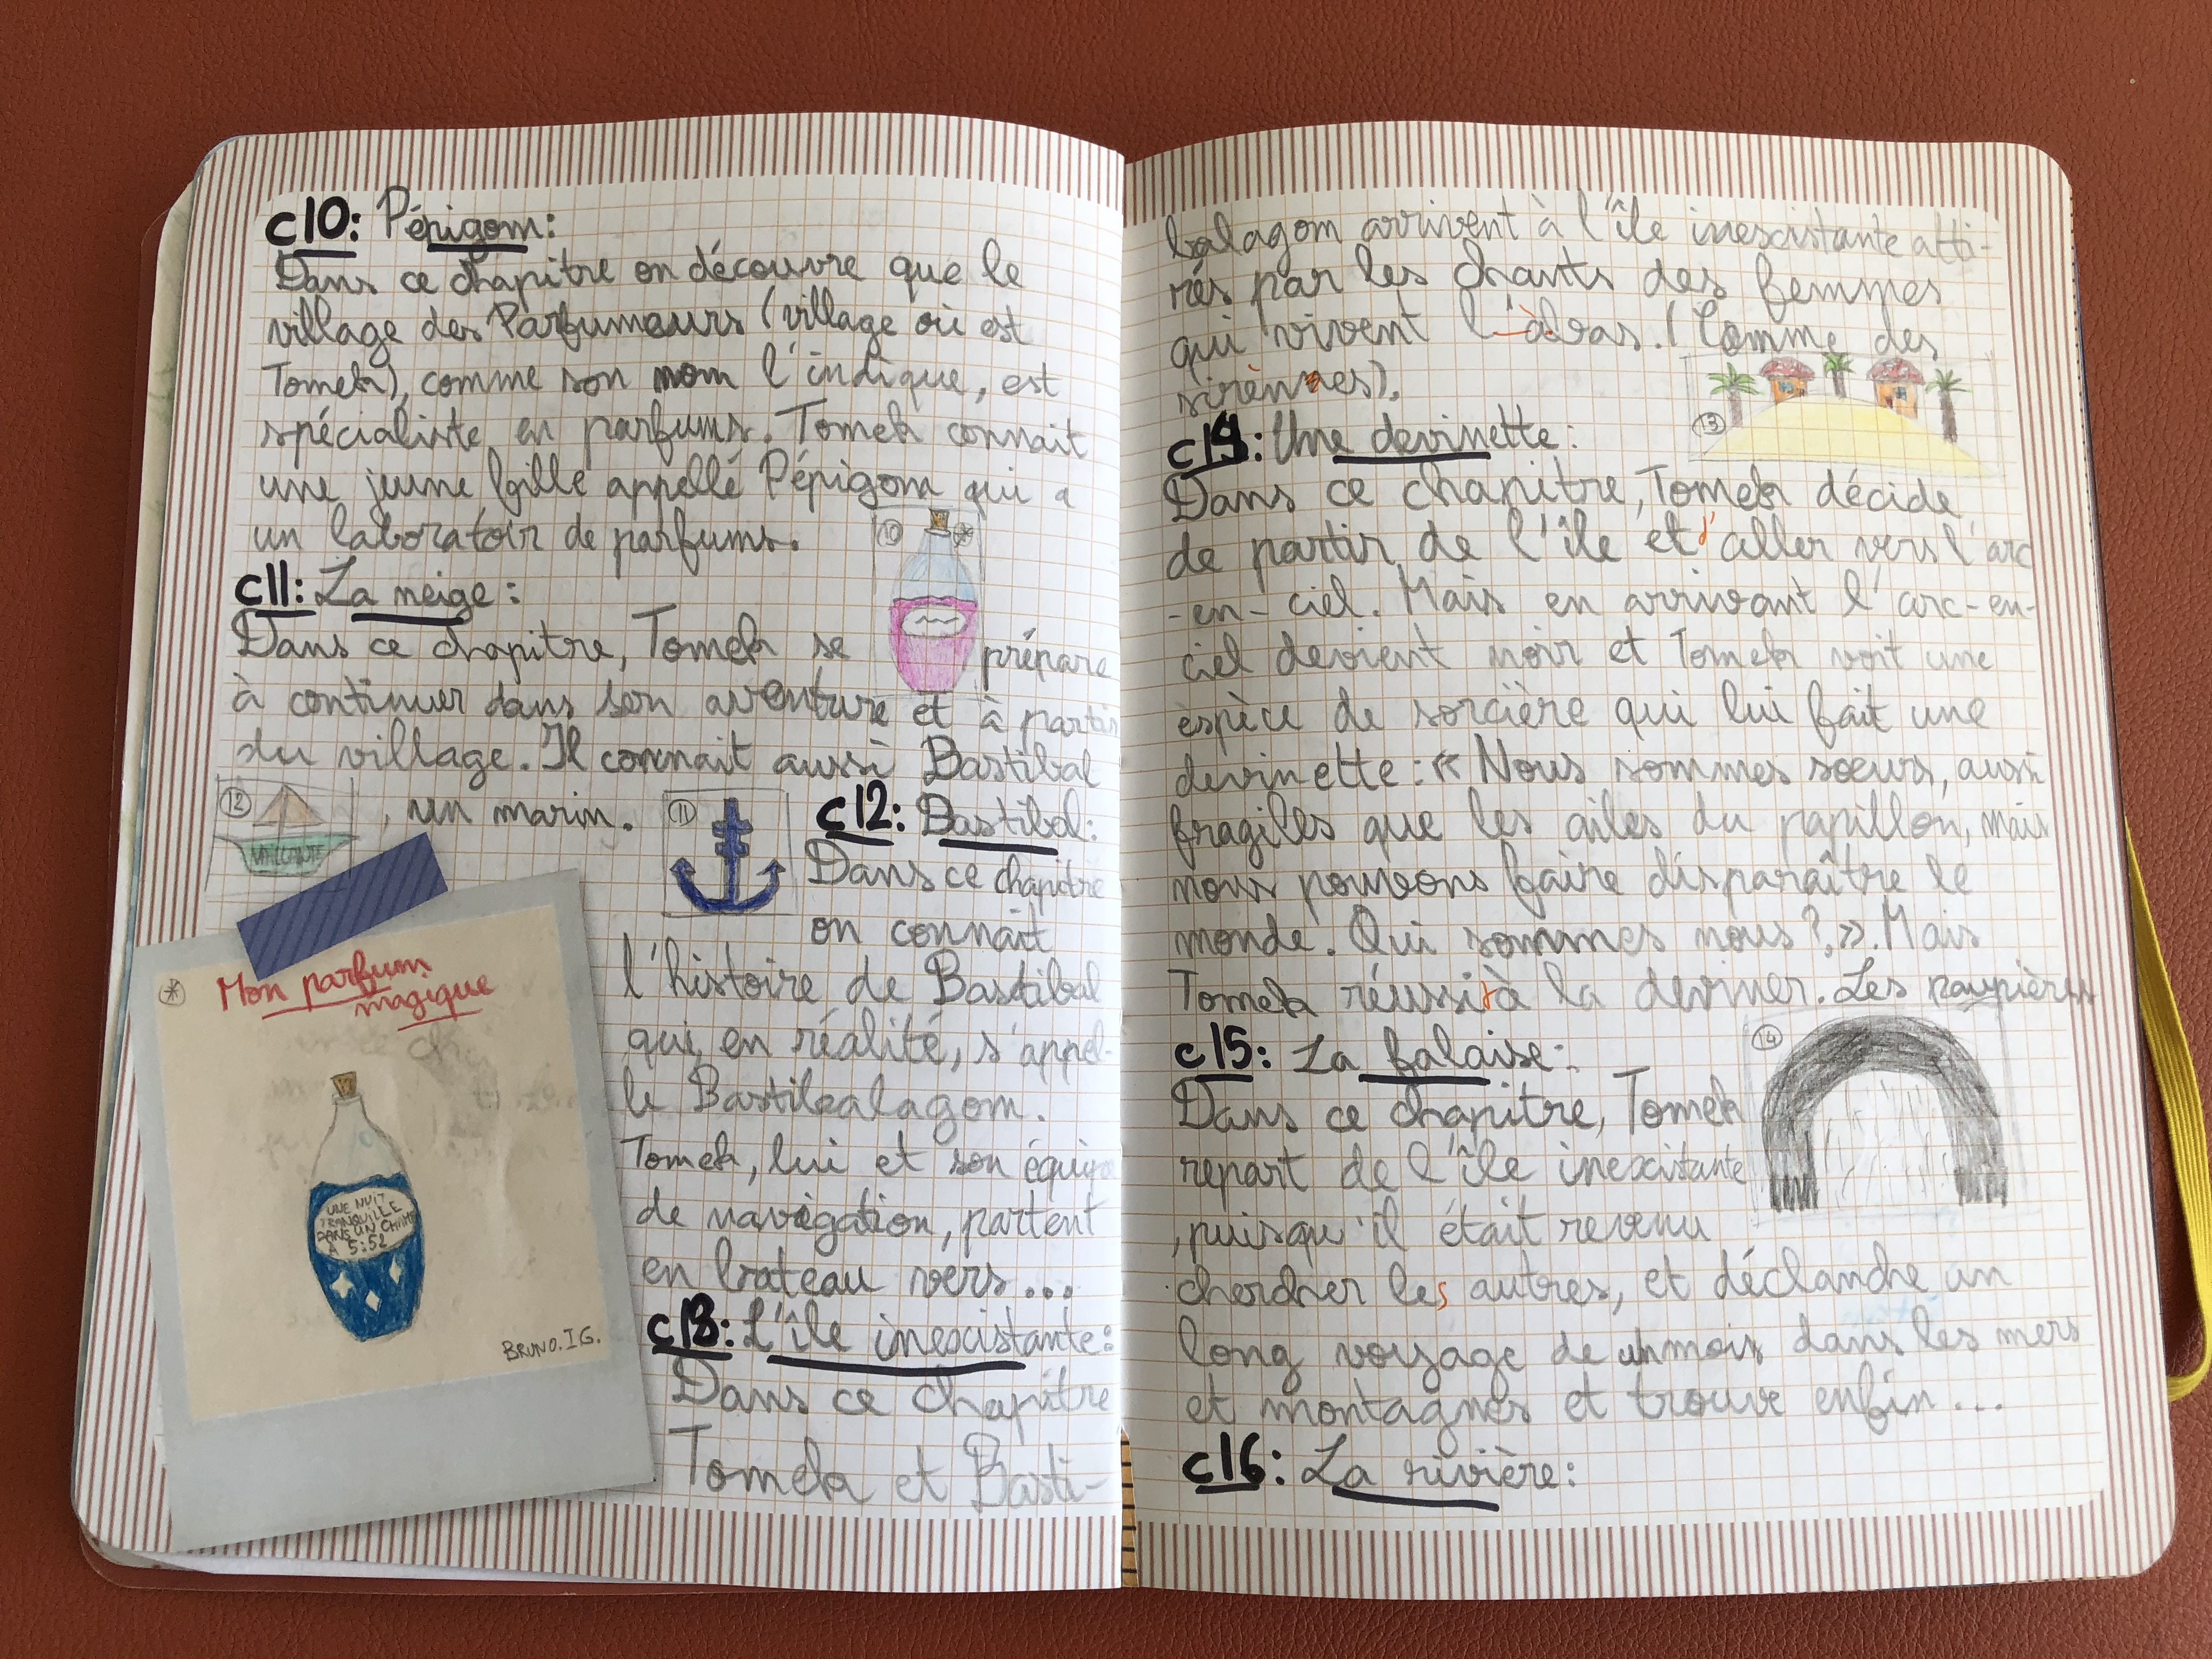 c10: Pépigom:
Dans ce chapitre on découvre que le
village des Parfumeurs (village où est
Tomek), comme son nom l'indique, est
spécialiste en parfums. Tomek connait
une jeune fille appellé Pépigom qui a
un laboratoir de parfums.
10 *
c11: La neige:
Dans ce chapitre, Tomek se prépare
à continuer dans son aventure et à partir
du village. Il connait aussi Bastibal
12 , un marin.
VAILLANTE
11
c12: Bastibal:
Dans ce chapitre
on connait
l'histoire de Bastibal
qui, en réalité, s'appel-
le Bastibalagom.
Tomek, lui et son équipe
de navigation, partent
en bateau vers...
c13: L'île inexistante:
Dans ce chapitre
Tomek et Basti-
* Mon parfum
magique
UNE NUIT
TRANQUILLE
DANS UN CHAMP
À 5:52
BRUNO.IG.
balagom arrivent à l'île inexistante atti-
rés par les chants des femmes
qui vivent l'àbas. (Comme des
sirènes).
13
c14: Une devinette:
Dans ce chapitre, Tomek décide
de partir de l'île et d'aller vers l'arc
-en-ciel. Mais en arrivant l'arc-en-
ciel devient noir et Tomek voit une
espèce de sorcière qui lui fait une
devinette: « Nous sommes sœurs, aussi
fragiles que les ailes du papillon, mais
nous pouvons faire disparaître le
monde. Qui sommes nous?,». Mais
Tomek réussit à la deviner. Les paupières
c15: La falaise:
14
Dans ce chapitre, Tomek
repart de l'île inexistante
, puisqu'il était revenu
chercher les autres, et déclanche un
long voyage de un mois dans les mers
et montagnes et trouve enfin...
c16: La rivière: